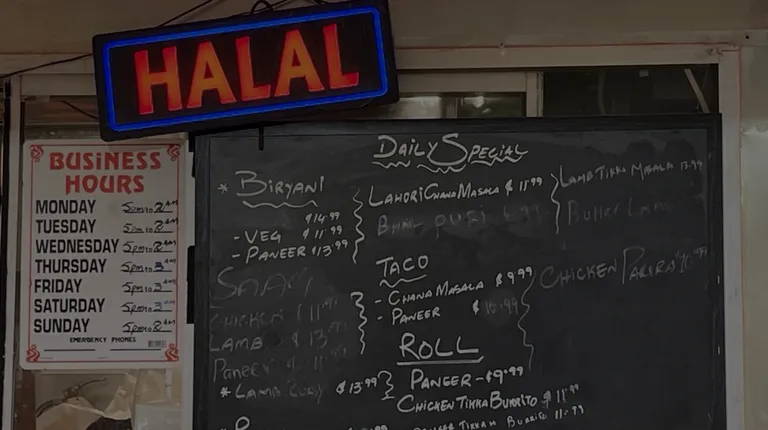 HALAL
BUSINESS
HOURS
MONDAY 5PM to 2AM
TUESDAY 5PM to 2AM
WEDNESDAY 5PM to 2AM
THURSDAY 5PM to 3AM
FRIDAY 5PM to 3AM
SATURDAY 5PM to 3AM
SUNDAY 5PM to 2AM
EMERGENCY PHONES
DAILY SPECIAL
* BIRYANI
$14.99
- VEG $11.99
- PANEER $13.99
CHICKEN $11.99
LAMB $13.99
PANEER $11.99
* LAMB $13.99
LAHORI CHANA MASALA $11.99
PURI 6.99
TACO
- CHANA MASALA $9.99
- PANEER $10.99
ROLL
PANEER - $9.99
CHICKEN TIKKA BURRITO $11.99
BURRITO 11.99
LAMB TIKKA MASALA 13.99
CHICKEN